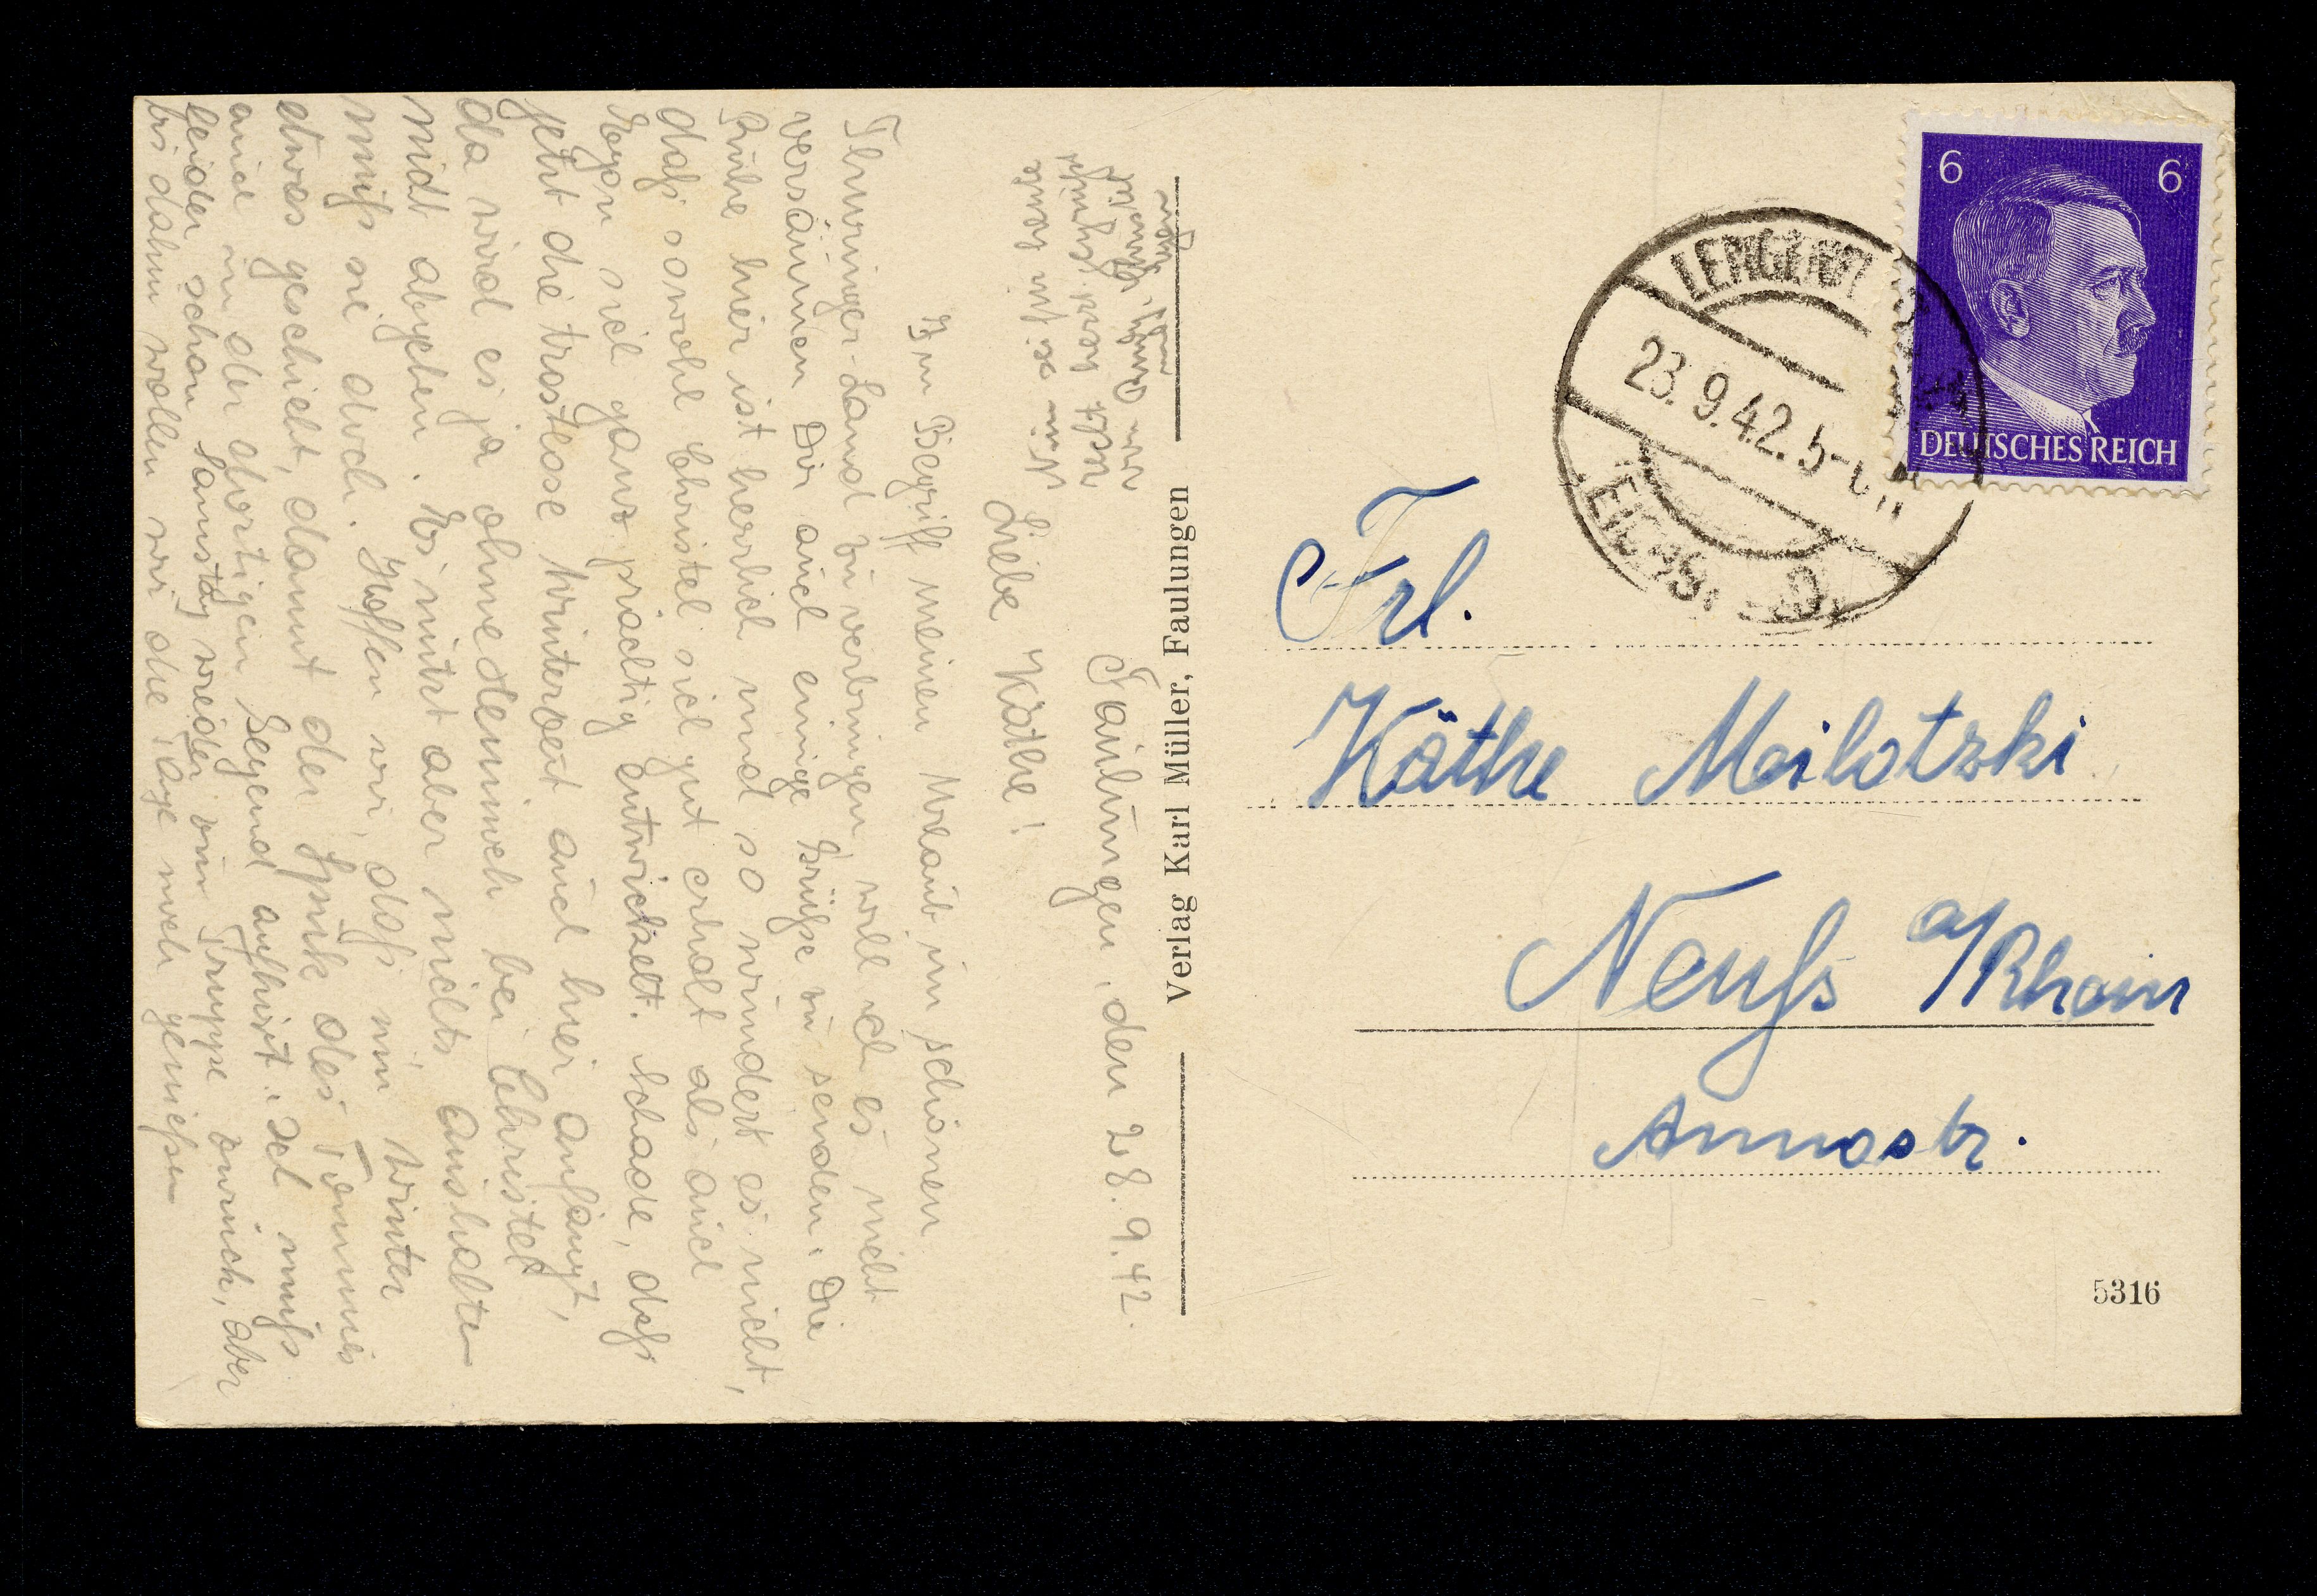 Faulungen, den 28. 9. 42.
Liebe Käthe!
Im Begriff meinen Urlaub im schönen
Thüringer-Land zu verbringen, will ich es nicht
versäumen Dir auch einige Grüße zu senden. Die
Ruhe hier ist herrlich und so wundert es nicht,
daß sowohl Christel sich gut erholt als auch
Egon sich ganz prächtig entwickelt. Schade, daß
jetzt die trostlose Winterzeit auch hier anfängt,
da wird es ja ohnedem noch bei Christel
nicht abgeben. Es nützt aber nichts aushalten
muß sie doch. Hoffen wir, daß im Winter
etwas geschieht, damit der Spuk des Tommies
auch in der dortigen Gegend aufhört. Ich muß
leider schon Samstag wieder zur Truppe zurück, aber
bis dahin wollen wir die Tage noch genießen
Nun sei für heute
recht herzl. gegrüßt
von
Verlag Karl Müller, Faulungen
6 6
DEUTSCHES REICH
LENGENFELD
23.9.42.5-
EICHSF.
Frl.
Käthe Meilotzki
Neuß a/Rhein
Annastr.
5316